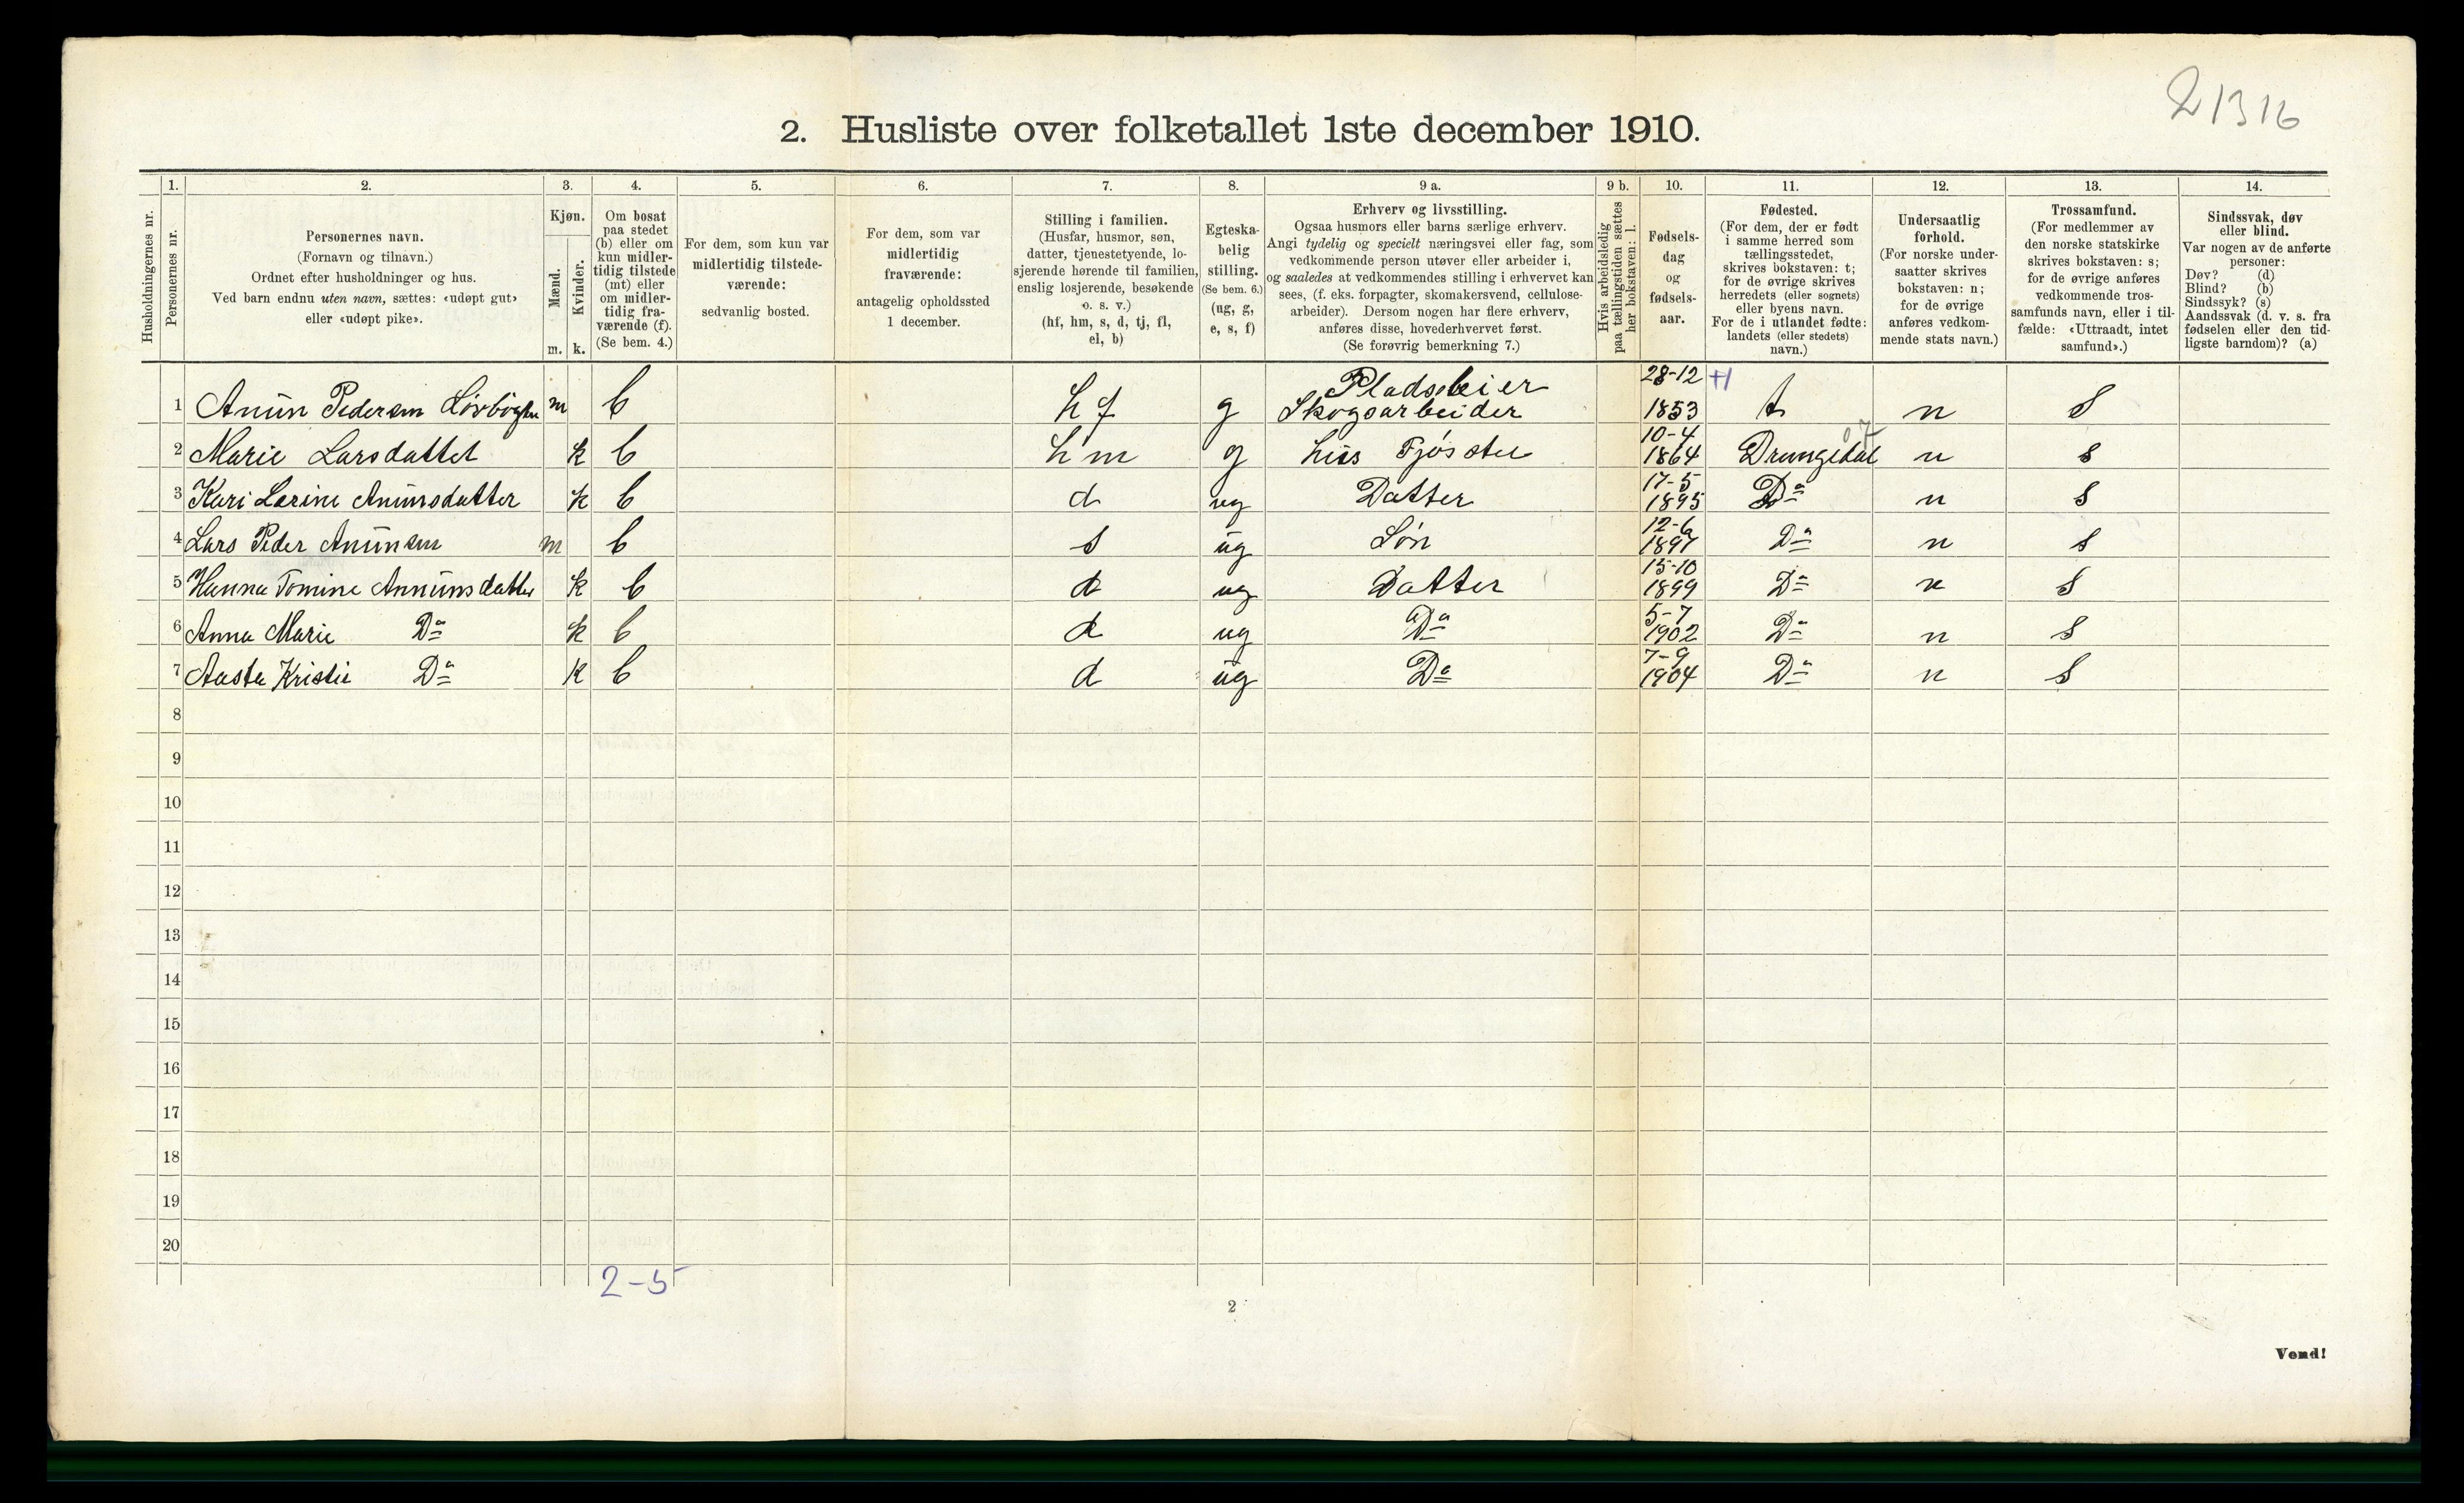 21316
2. Husliste over folketallet 1ste december 1910.
Husholdningernes nr.
1.
Personernes nr.
2.
Personernes navn.
(Fornavn og tilnavn.)
Ordnet efter husholdninger og hus.
Ved barn endnu uten navn, sættes: «udøpt gut»
eller «udøpt pike».
3.
Kjøn.
Mænd.
Kvinder.
m. k.
4.
Om bosat
paa stedet
(b) eller om
kun midler-
tidig tilstede
(mt) eller
om midler-
tidig fra-
værende (f).
(Se bem. 4.)
5.
For dem, som kun var
midlertidig tilstede-
værende:
sedvanlig bosted.
6.
For dem, som var
midlertidig
fraværende:
antagelig opholdssted
1 december.
7.
Stilling i familien.
(Husfar, husmor, søn,
datter, tjenestetyende, lo-
sjerende hørende til familien,
enslig losjerende, besøkende
o. s. v.)
(hf, hm, s, d, tj, fl,
el, b)
8.
Egteska-
belig
stilling.
(Se bem. 6.)
(ug, g,
e, s, f)
9 a.
Erhverv og livsstilling.
Ogsaa husmors eller barns særlige erhverv.
Angi tydelig og specielt næringsvei eller fag, som
vedkommende person utøver eller arbeider i,
og saaledes at vedkommendes stilling i erhvervet kan
sees, (f. eks. forpagter, skomakersvend, cellulose-
arbeider). Dersom nogen har flere erhverv,
anføres disse, hovederhvervet først.
(Se forøvrig bemerkning 7.)
9 b.
Hvis arbeidsledig
paa tællingstiden sættes
her bokstaven: l.
10.
Fødsels-
dag
og
fødsels-
aar.
11.
Fødested.
(For dem, der er født
i samme herred som
tællingsstedet,
skrives bokstaven: t;
for de øvrige skrives
herredets (eller sognets)
eller byens navn.
For de i utlandet fødte:
landets (eller stedets)
navn.)
12.
Undersaatlig
forhold.
(For norske under-
saatter skrives
bokstaven: n;
for de øvrige
anføres vedkom-
mende stats navn.)
13.
Trossamfund.
(For medlemmer av
den norske statskirke
skrives bokstaven: s;
for de øvrige anføres
vedkommende tros-
samfunds navn, eller i til-
fælde: «Uttraadt, intet
samfund».)
14.
Sindssvak, døv
eller blind.
Var nogen av de anførte
personer:
Døv? (d)
Blind? (b)
Sindssyk? (s)
Aandssvak (d. v. s. fra
fødselen eller den tid-
ligste barndom)? (a)
1 Anün Pedersen m b hf g Pladseier Skogsarbeider 28-12 1853 t n S
2 Marie Larsdatter k b hm g 10-4 1864 Drangedal n s
3 Kari Larine Anünsdatter k b d ug Datter 17-5 1895 Da n S
4 Lars Peder Anünsen m b s üg Søn 12-6 1897 Da n s
5 Hanna Tomine Annünsdatter k b d ug Datter 15-10 1899 Da n S
6 Anna Marie Da k b d ug Da 5-7 1902 Da n S
7 Aasta Kristie Da k b d üg Da 7-9 1904 Da n S
8
9
10
11
12
13
14
15
16
17
18
19
20
2-5
2
Vend!